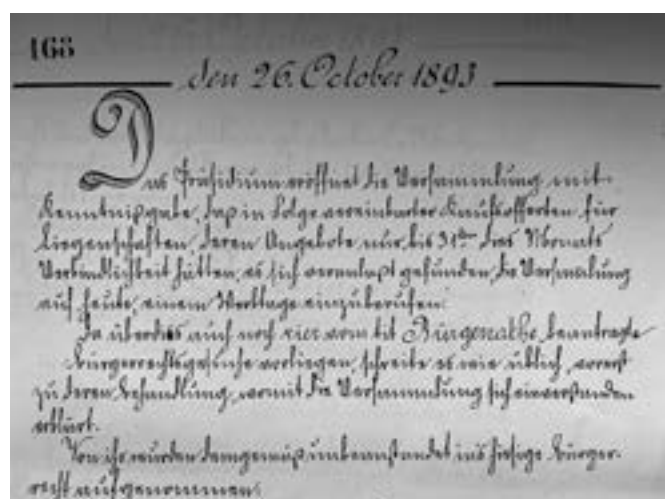 168
den 26. October 1893
Das Präsidium eröffnet die Versammlung mit
Kenntnißgabe, daß in Folge vereinbarter Kaufsofferten für
Liegenschaften, deren Angebote nur bis 31ten dies Monats
Verbindlichkeit hätten, es sich veranlaßt gefunden, die Versammlung
auf heute, einem Werktage einzuberufen.
Da überdies auch noch vier vom tit. Bürgerrathe beantragte
Bürgerrechtsgesuche vorliegen, schreite es wie üblich, vorerst
zu deren Behandlung, womit die Versammlung sich einverstanden
erklärt.
Von ihr wurden demgemäß unbeanstandet ins hiesige Bürger-
recht aufgenommen: